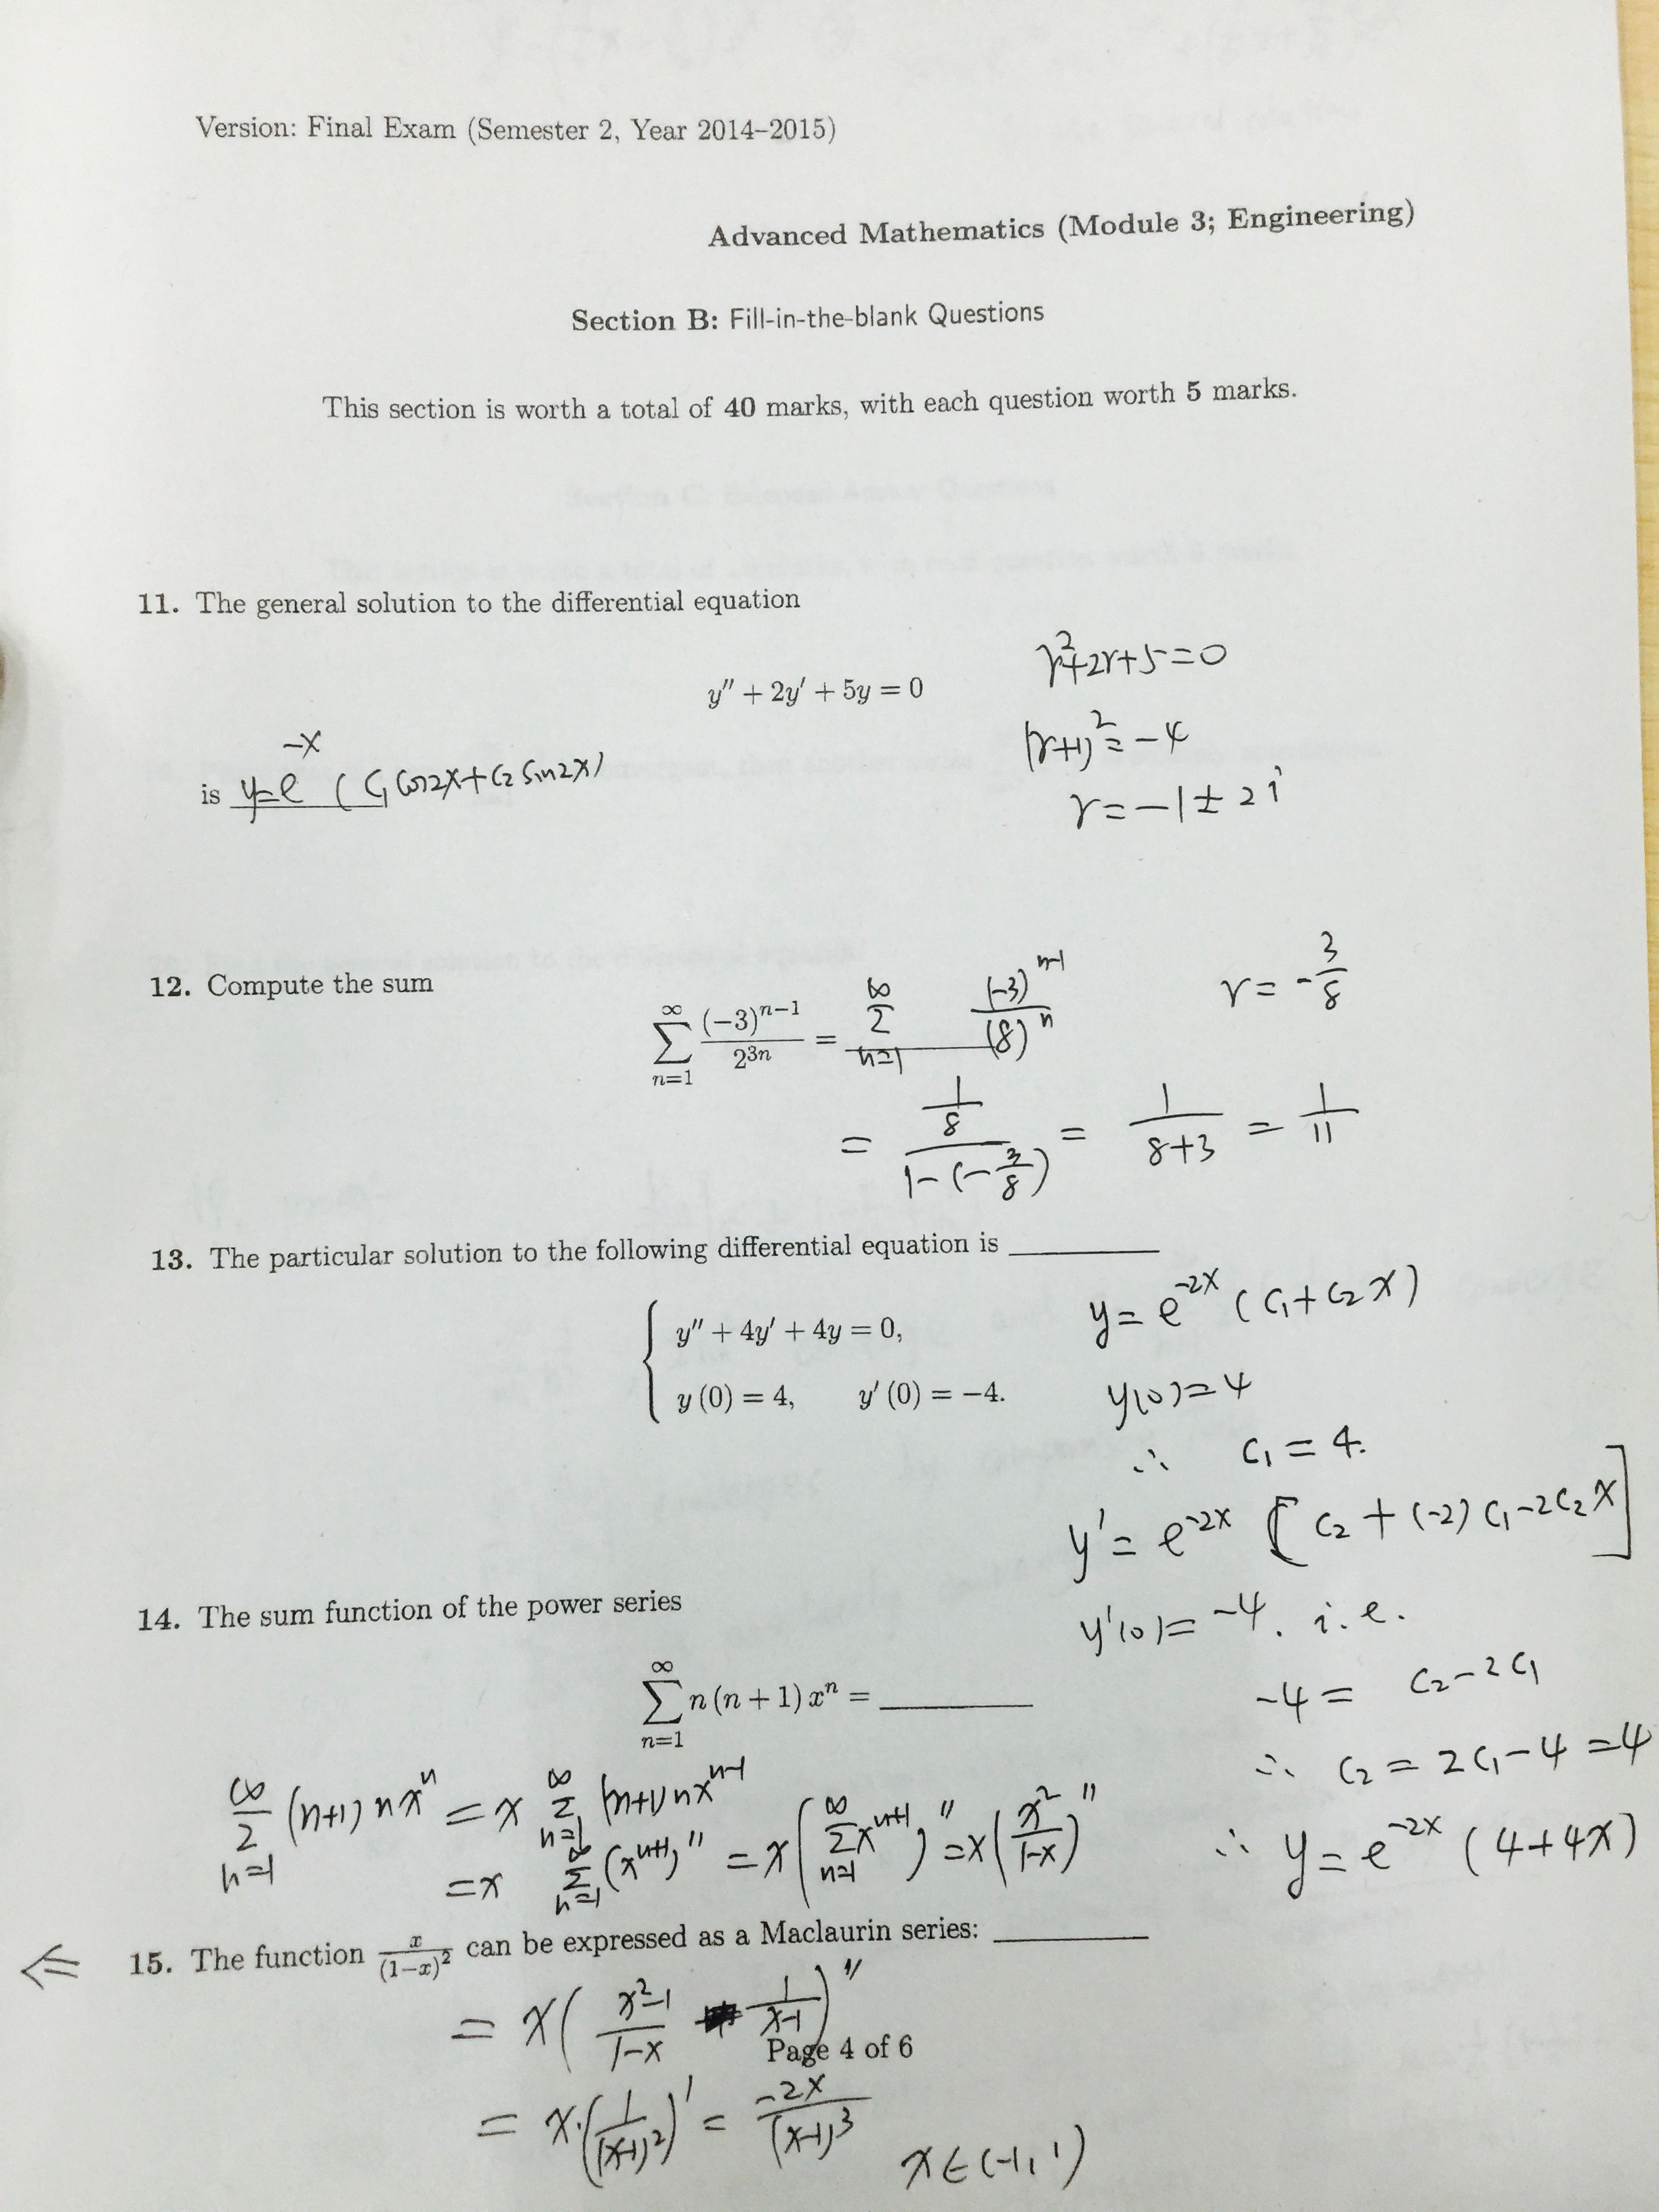 Version: Final Exam (Semester 2, Year 2014–2015)
Advanced Mathematics (Module 3; Engineering)
Section B: Fill-in-the-blank Questions
This section is worth a total of 40 marks, with each question worth 5 marks.
11. The general solution to the differential equation
y″ + 2y′ + 5y = 0
r²+2r+5=0
(r+1)²=-4
r=-1±2i
is y=e^{-x} (C₁ cos2x+C₂ sin2x)
12. Compute the sum
∑_{n=1}^{∞} (−3)^{n−1}/2^{3n} = ∑_{n=1}^{∞} (-3)^{n-1}/(8)^n
r = -3/8
= (1/8)/(1-(-3/8)) = 1/(8+3) = 1/11
13. The particular solution to the following differential equation is ________
{ y″ + 4y′ + 4y = 0,
y (0) = 4, y′ (0) = −4.
y = e^{-2x} (C₁+C₂x)
y(0)=4
∴ C₁ = 4.
y' = e^{-2x} [C₂+(-2)C₁-2C₂x]
y'(0)= -4. i.e.
-4 = C₂-2C₁
∴ C₂ = 2C₁-4 =4
∴ y = e^{-2x} (4+4x)
14. The sum function of the power series
∑_{n=1}^{∞} n (n + 1) x^n = ________
∑_{n=1}^{∞} (n+1) n x^n = x ∑_{n=1}^{∞} (n+1) n x^{n-1}
= x ∑_{n=1}^{∞} (x^{n+1})'' = x (∑_{n=1}^{∞} x^{n+1})'' = x (x²/(1-x))''
⇐ 15. The function x/(1−x)² can be expressed as a Maclaurin series: ________
= x ( (x²-1)/(1-x) - 1/(x-1) )''
Page 4 of 6
= x·(1/(x-1)²)' = -2x/(x-1)³
x∈(-1,1)